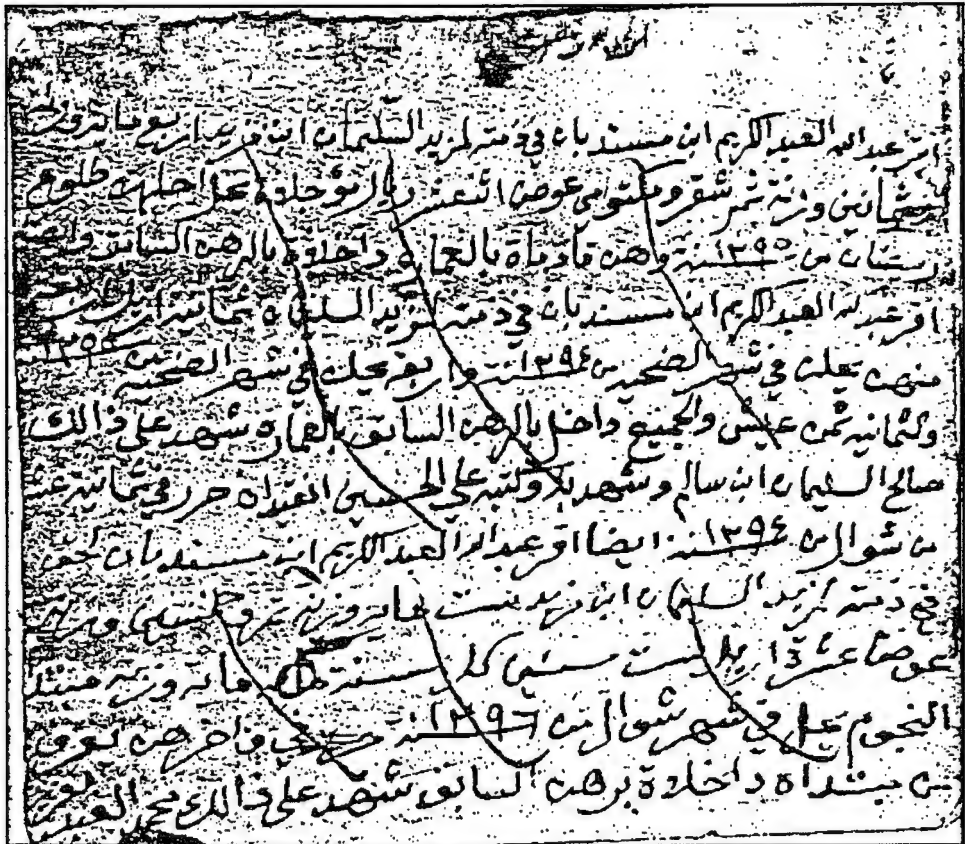 اقر عبد الله العبد الكريم ابن مسند بان في ذمته لمزيد السليمان ابن مزيد اربع مائه وزن
وثمانين وزنة تمر شقر ومكتومي عوض اثنعشر ريال مؤجلات يحل اجلهن طلوع
رمضان من سنة ١٣٩٥ وهن قادمات بالعمارة داخلات بالرهن السابق
اقر عبد الله العبد الكريم ابن مسند بان في ذمته لمزيد السليمان ثمانية اريل
منهن يحلن في شهر الضحيه من سنة ١٣٩٤ واربع يحلن في شهر الضحيه
والثمانيه ثمن عيش والجميع داخل بالرهن السابق بالعمارة شهد على ذالك
صالح السليمان ابن سالم وشهد به وكتبه علي الحسين حرر في ثمانية
من شوال من سنة ١٣٩٤ ايضا اقر عبد الله العبد الكريم ابن مسند بان
في ذمته لمزيد السليمان ابن مزيد ست مايه وزنة تمر
عوض عشرة اريل ست سنين كل سنة مائة وزنه مبتدا
النجوم يحل في شهر شوال من سنة ١٣٩٦
من مبتداه داخلات برهن السابق شهد على ذالك محمد